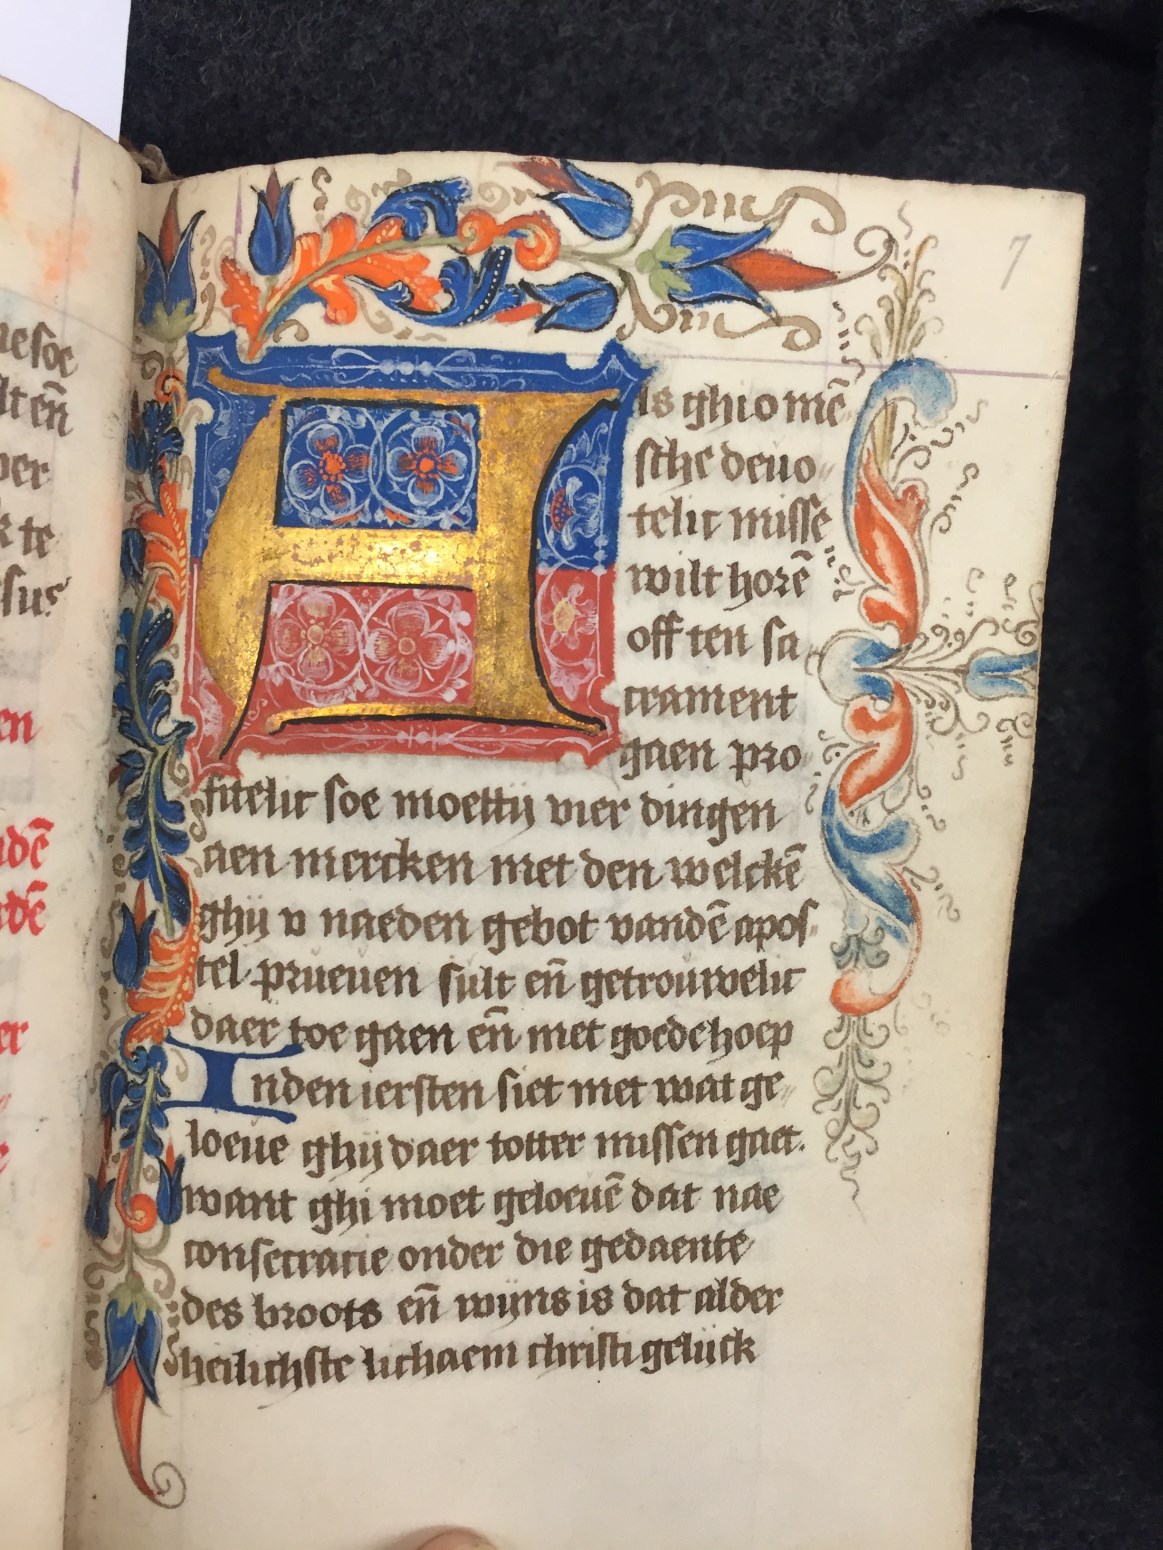 nesoe
lt en̄
per
k te
sus
en
dē
dē
er
7
Als ghi o mē
sche deuo
telic missē
wilt horē
off ten sa
crament
gaen pro
fitelic soe moettij vier dingen
aen mercken met den welckē
ghij v naeden gebot vandē apos
tel prueuen sult en̄ getrouwelic
daer toe gaen en̄ met goede hoep
Inden iersten siet met wat ge
loeue ghij daer totter missen gaet.
want ghi moet geloeuē dat nae
consecracie onder die gedaente
des broots en̄ wijns is dat alder
heilichste lichaem christi gelijck